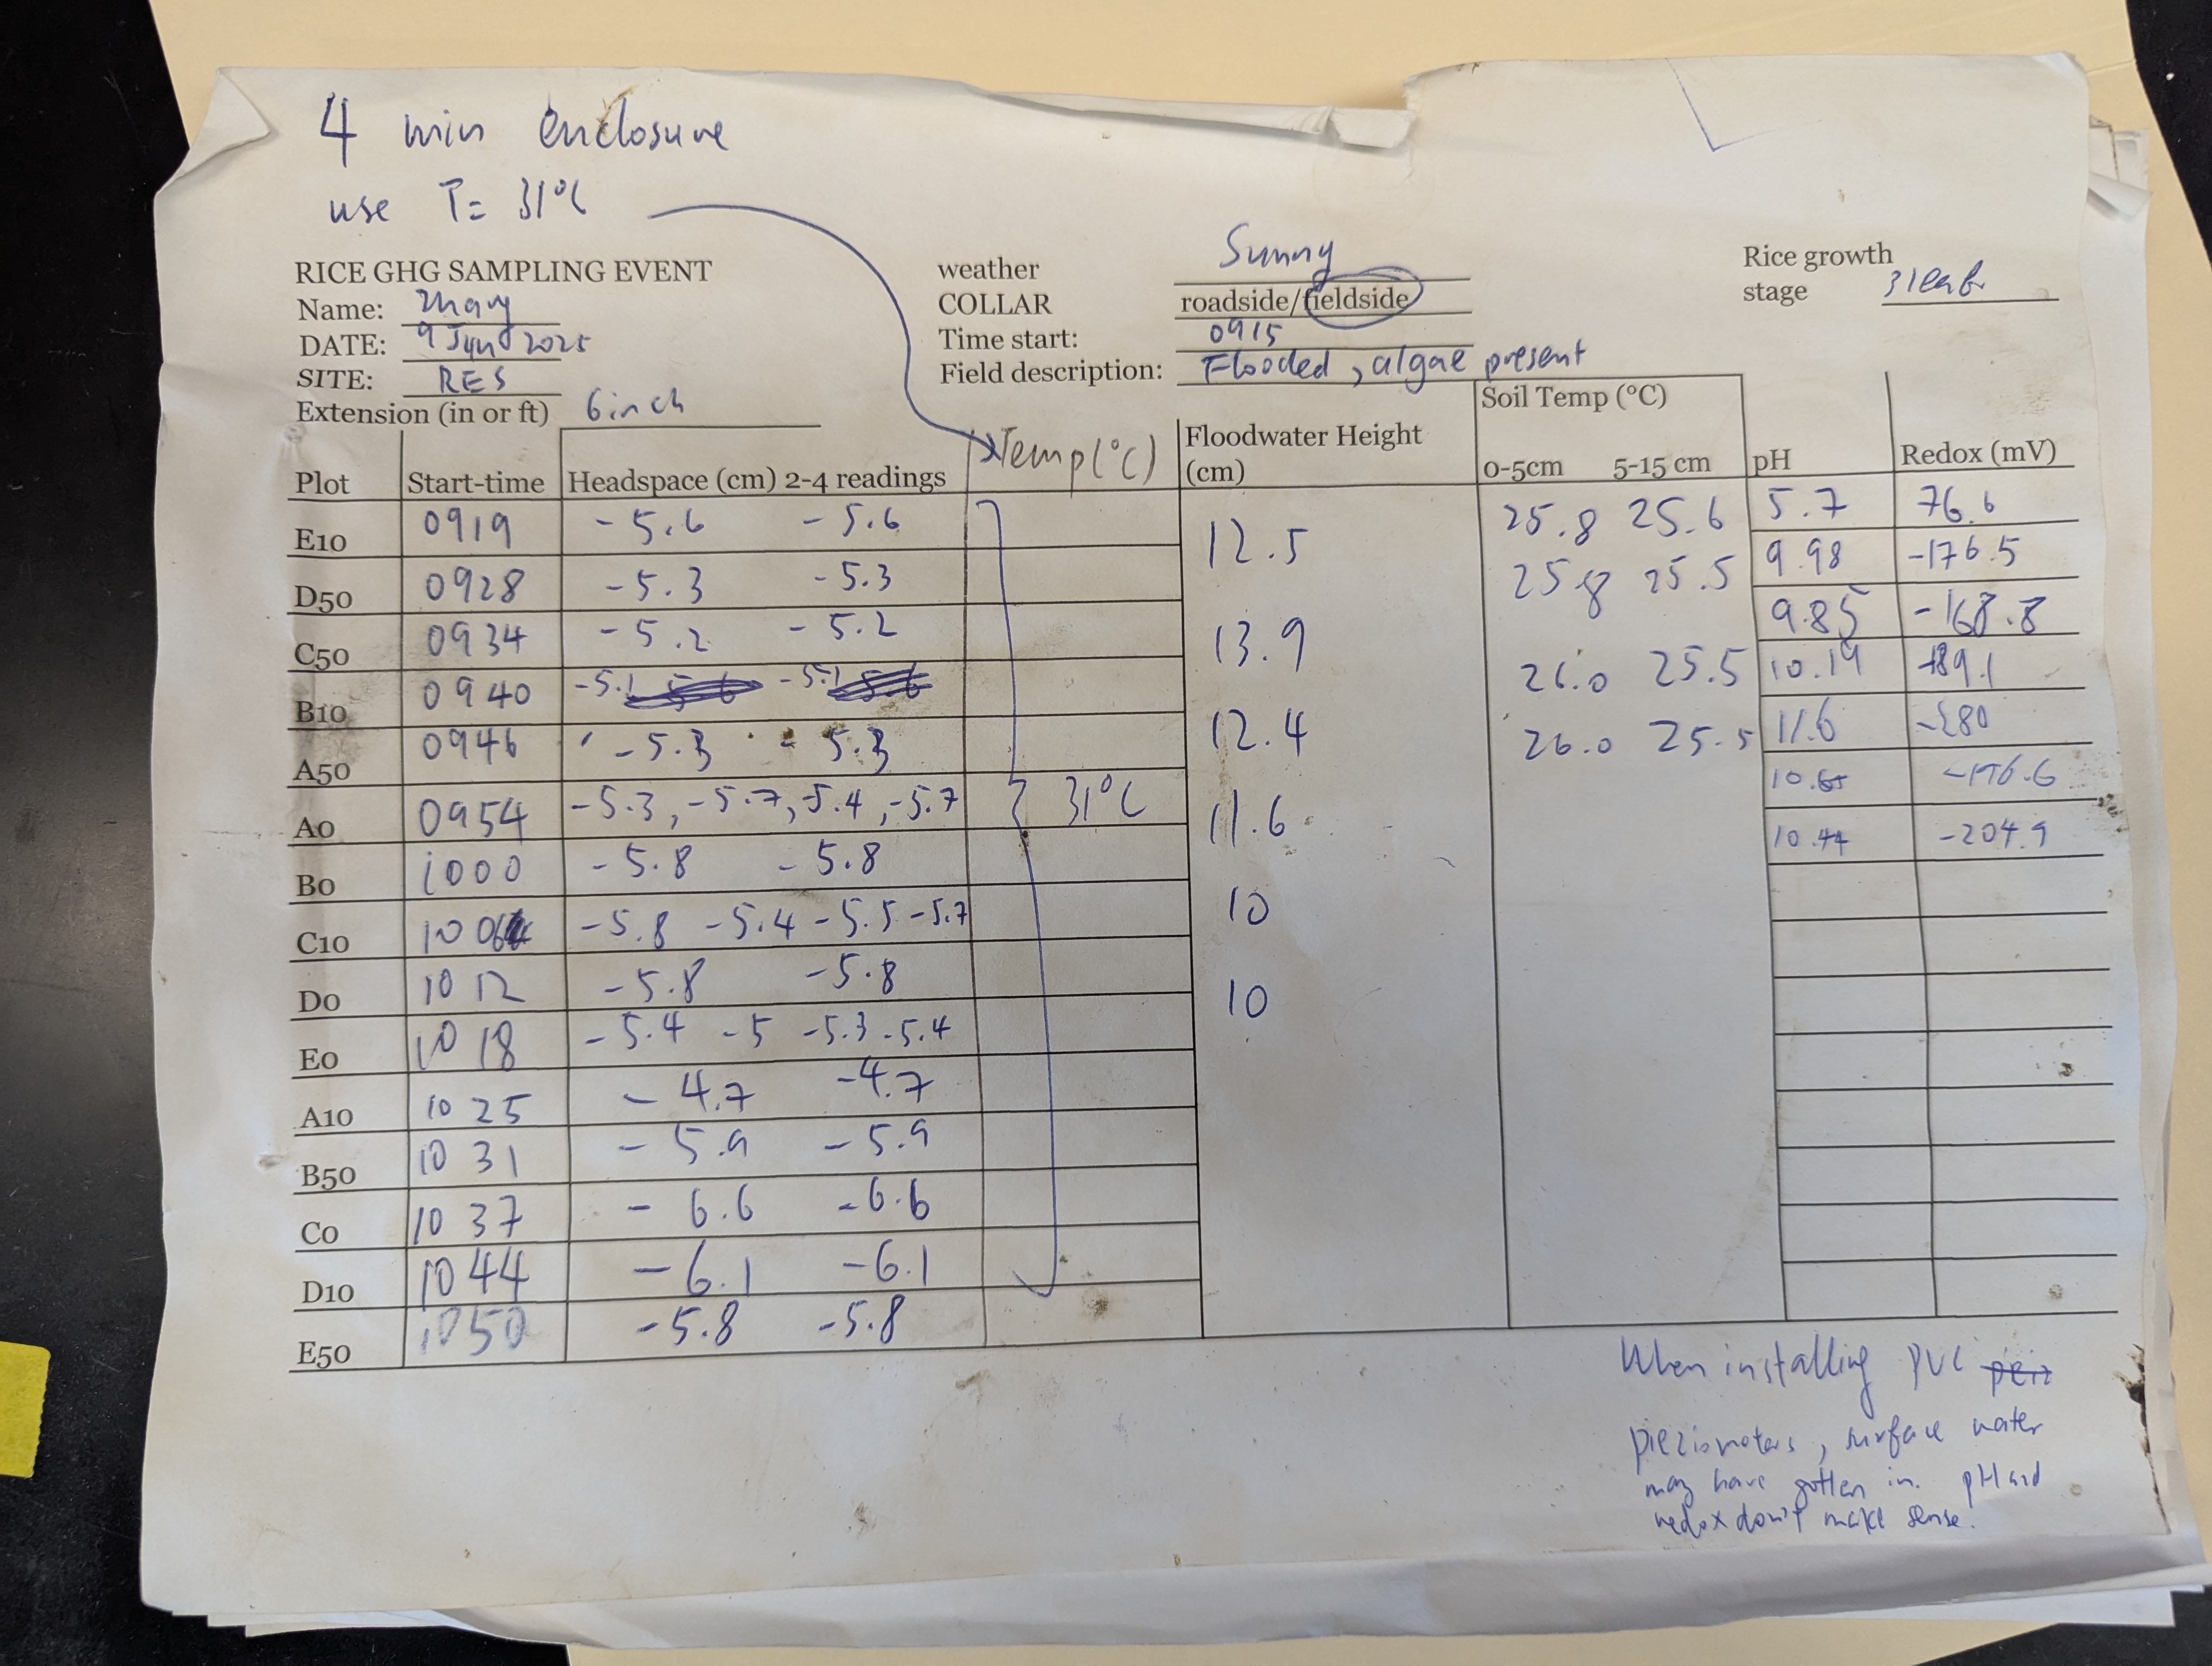 4 min enclosure
use T= 31°C
RICE GHG SAMPLING EVENT
Name: Zhang
DATE: 9 Jun 2025
SITE: RES
Extension (in or ft) 6 inch
weather Sunny
COLLAR roadside/fieldside
Time start: 0915
Field description: Flooded, algae present
Rice growth
stage 3 leaf
Soil Temp (°C)
Plot Start-time Headspace (cm) 2-4 readings Temp (°C) Floodwater Height (cm) 0-5cm 5-15 cm pH Redox (mV)
E10 0919 -5.6 -5.6 12.5 25.8 25.6 5.7 76.6
D50 0928 -5.3 -5.3 25.8 25.5 9.98 -176.5
C50 0934 -5.2 -5.2 13.9 9.85 -168.8
B10 0940 -5.1 -5.1 26.0 25.5 10.19
A50 0946 -5.3 -5.3 12.4 26.0 25.5 11.6
A0 0954 -5.3, -5.7, -5.4, -5.7 31°C 11.6
B0 1000 -5.8 -5.8 10.44 -204.9
C10 1006 -5.8 -5.4 -5.5 -5.7 10
D0 1012 -5.8 -5.8 10
E0 1018 -5.4 -5 -5.3 -5.4
A10 1025 -4.7 -4.7
B50 1031 -5.9 -5.9
C0 1037 -6.6 -6.6
D10 1044 -6.1 -6.1
E50 1050 -5.8 -5.8
When installing PVC
pieziometers, surface water
may have gotten in. pH and
redox don't make sense.